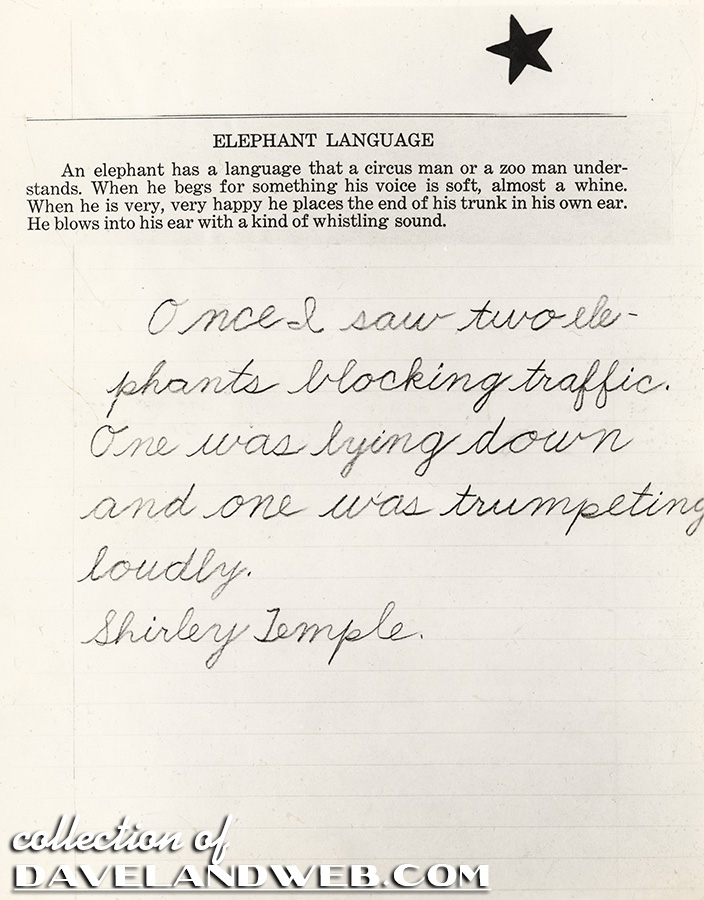 ELEPHANT LANGUAGE
An elephant has a language that a circus man or a zoo man under-
stands. When he begs for something his voice is soft, almost a whine.
When he is very, very happy he places the end of his trunk in his own ear.
He blows into his ear with a kind of whistling sound.
Once I saw two ele-
phants blocking traffic.
One was lying down
and one was trumpeting
loudly.
Shirley Temple.
collection of
DAVELANDWEB.COM